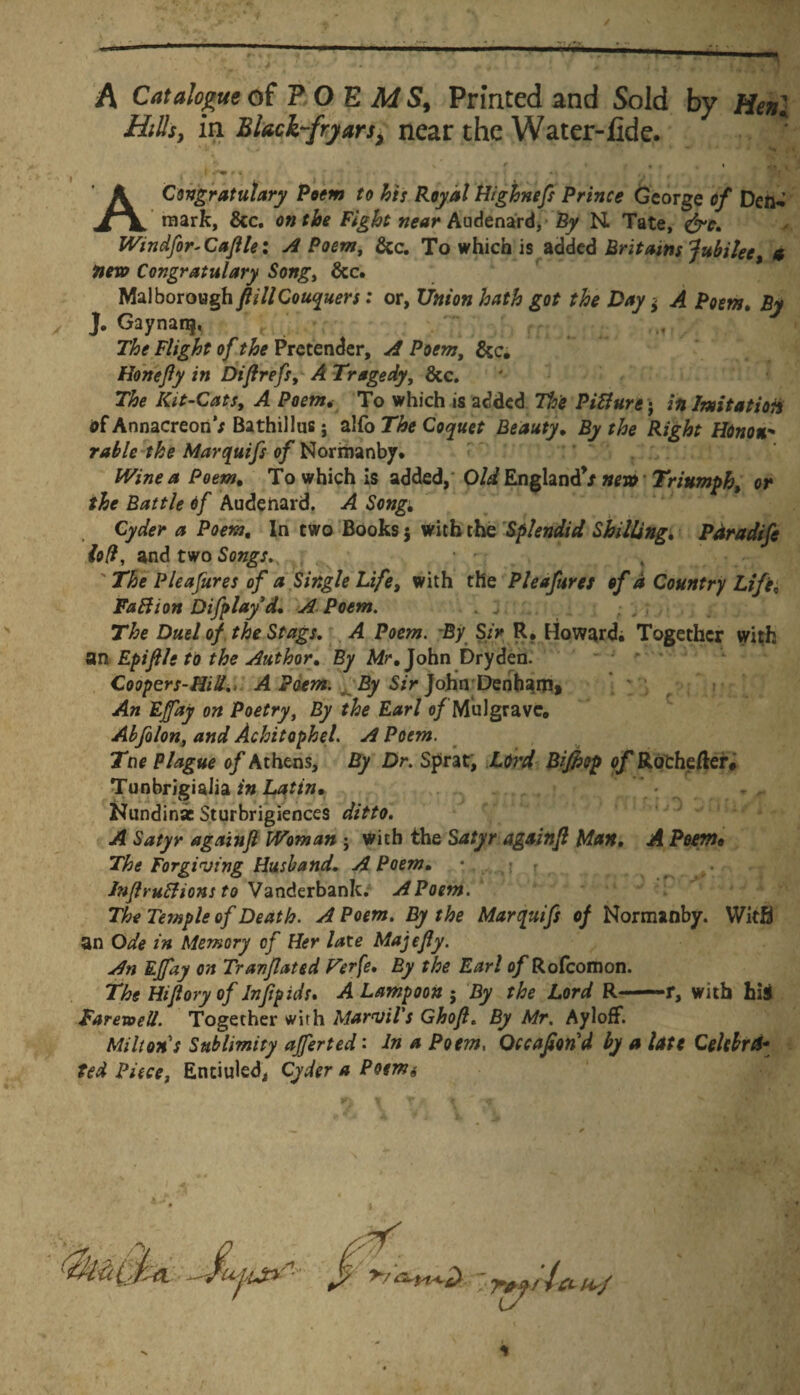 A Catalogue of POEMS, Printed and Sold by Hen.
Hills, in Black-fryars, near the Water-ſide.
A Congratulary Poem to his Royal Highneſs Prince George of Den-
mark, &c. on the Fight near Audenard, By N. Tate, &c.
Windſor-Caſtle: A Poem, &c. To which is added Britains Jubilee, a
new Congratulary Song, &c.
Malborough ſtill Couquers: or, Union hath got the Day; A Poem. By
J. Gaynam.
The Flight of the Pretender, A Poem, &c.
Honeſty in Diſtreſs, A Tragedy, &c.
The Kit-Cats, A Poem. To which is added The Picture; in Imitation
of Annacreon's Bathillus; alſo The Coquet Beauty. By the Right Honou-
rable the Marquiſs of Normanby.
Wine a Poem. To which is added, Old England's new Triumph, or
the Battle of Audenard. A Song.
Cyder a Poem. In two Books; with the Splendid Shilling. Paradiſe
loſt, and two Songs.
The Pleaſures of a Single Life, with the Pleaſures of a Country Life.
Faction Diſplay'd. A Poem.
The Duel of the Stags. A Poem. By Sir R. Howard. Together with
an Epiſtle to the Author. By Mr. John Dryden.
Coopers-Hill. A Poem. By Sir John Denham,
An Eſſay on Poetry, By the Earl of Mulgrave.
Abſolon, and Achitophel. A Poem.
Tne Plague of Athens, By Dr. Sprat, Lord Biſhop of Rocheſter.
Tunbrigialia in Latin.
Nundinæ Sturbrigiences ditto.
A Satyr againſt Woman; with the Satyr againſt Man. A Poem.
The Forgiving Husband. A Poem.
Inſtructions to Vanderbank. A Poem.
The Temple of Death. A Poem. By the Marquiſs of Normanby. With
an Ode in Memory of Her late Majeſty.
An Eſſay on Tranſlated Verſe. By the Earl of Roſcomon.
The Hiſtory of Inſipids. A Lampoon; By the Lord R——r, with his
Farewell. Together with Marvil's Ghoſt. By Mr. Ayloff.
Milton's Sublimity aſſerted: In a Poem. Occaſion'd by a late Celebra-
ted Piece, Entiuled, Cyder a Poem.